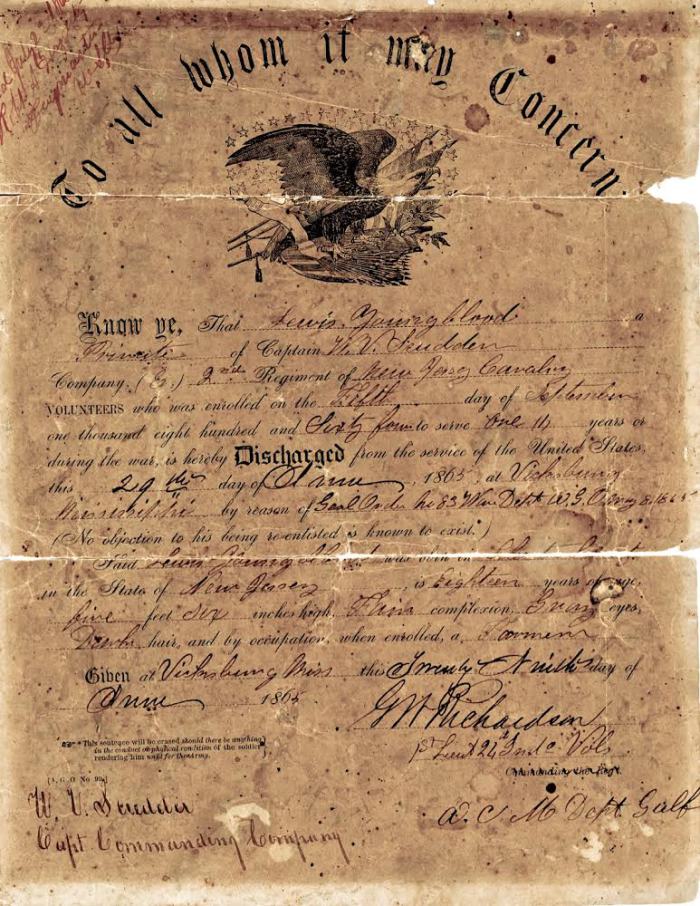 To all whom it may Concern
Know ye, That Lewis Youngblood a
Private of Captain W. V. Scudder
Company, (E.) 2nd Regiment of New Jersey Cavalry
VOLUNTEERS who was enrolled on the Fifth day of September
one thousand eight hundred and Sixty four to serve One (1) years or
during the war, is hereby Discharged from the service of the United States,
this 29th day of June, 1865, at Vicksburg
Mississippi by reason of Genl Order No 83 War Dept A. G. O. May 8. 1865
(No objection to his being re-enlisted is known to exist.*)
Said Lewis Youngblood was born in
in the State of New Jersey, is Eighteen years of age,
five feet six inches high, complexion, Gray eyes,
Dark hair, and by occupation, when enrolled, a Farmer
Given at Vicksburg Miss this Twenty Ninth day of
June 1865
G W Richardson
1st Lieut 24 Ind. Vols
Commanding the Reg't.
*This sentence will be erased should there be anything
in the conduct or physical condition of the soldier
rendering him unfit for the army.
[A. G. O. No 99.]
W. V. Scudder
Capt Commanding Company
A. C. M Dept Gulf